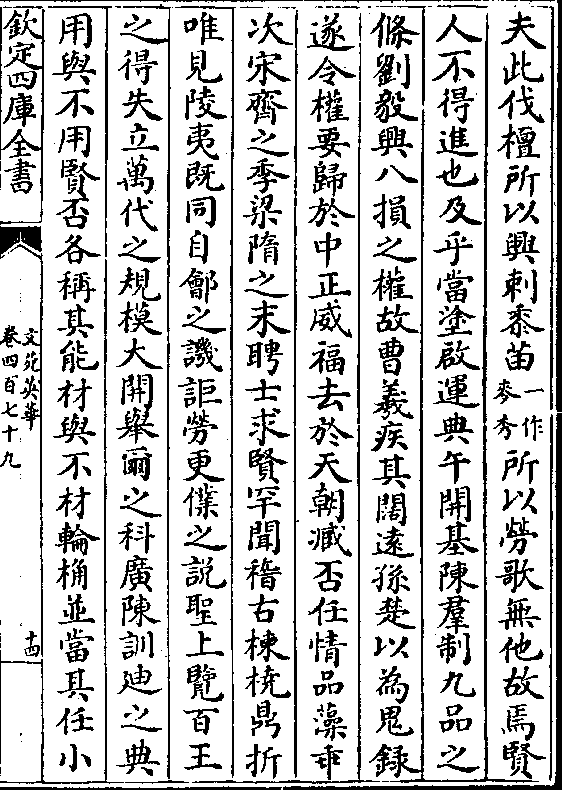 夫此伐檀所以興刺黍苗一作麥秀所以勞歌無他故焉賢
人不得進也及乎當塗啟運典午開基陳羣制九品之
條劉毅興八損之權故曹羲疾其闊遠孫楚以為鬼錄
遂令權要歸於中正威福去於天朝臧否任情品藻乖
次宋齊之季梁隋之末聘士求賢罕聞稽古棟橈鼎折
唯見陵夷既同自鄶之譏詎勞更僕之説聖上覽百王
之得失立萬代之規模大開舉爾之科廣陳訓廸之典
用與不用賢否各稱其能材與不材輪桷並當其任小
欽定四庫全書
文苑英華
卷四百七十九
十四